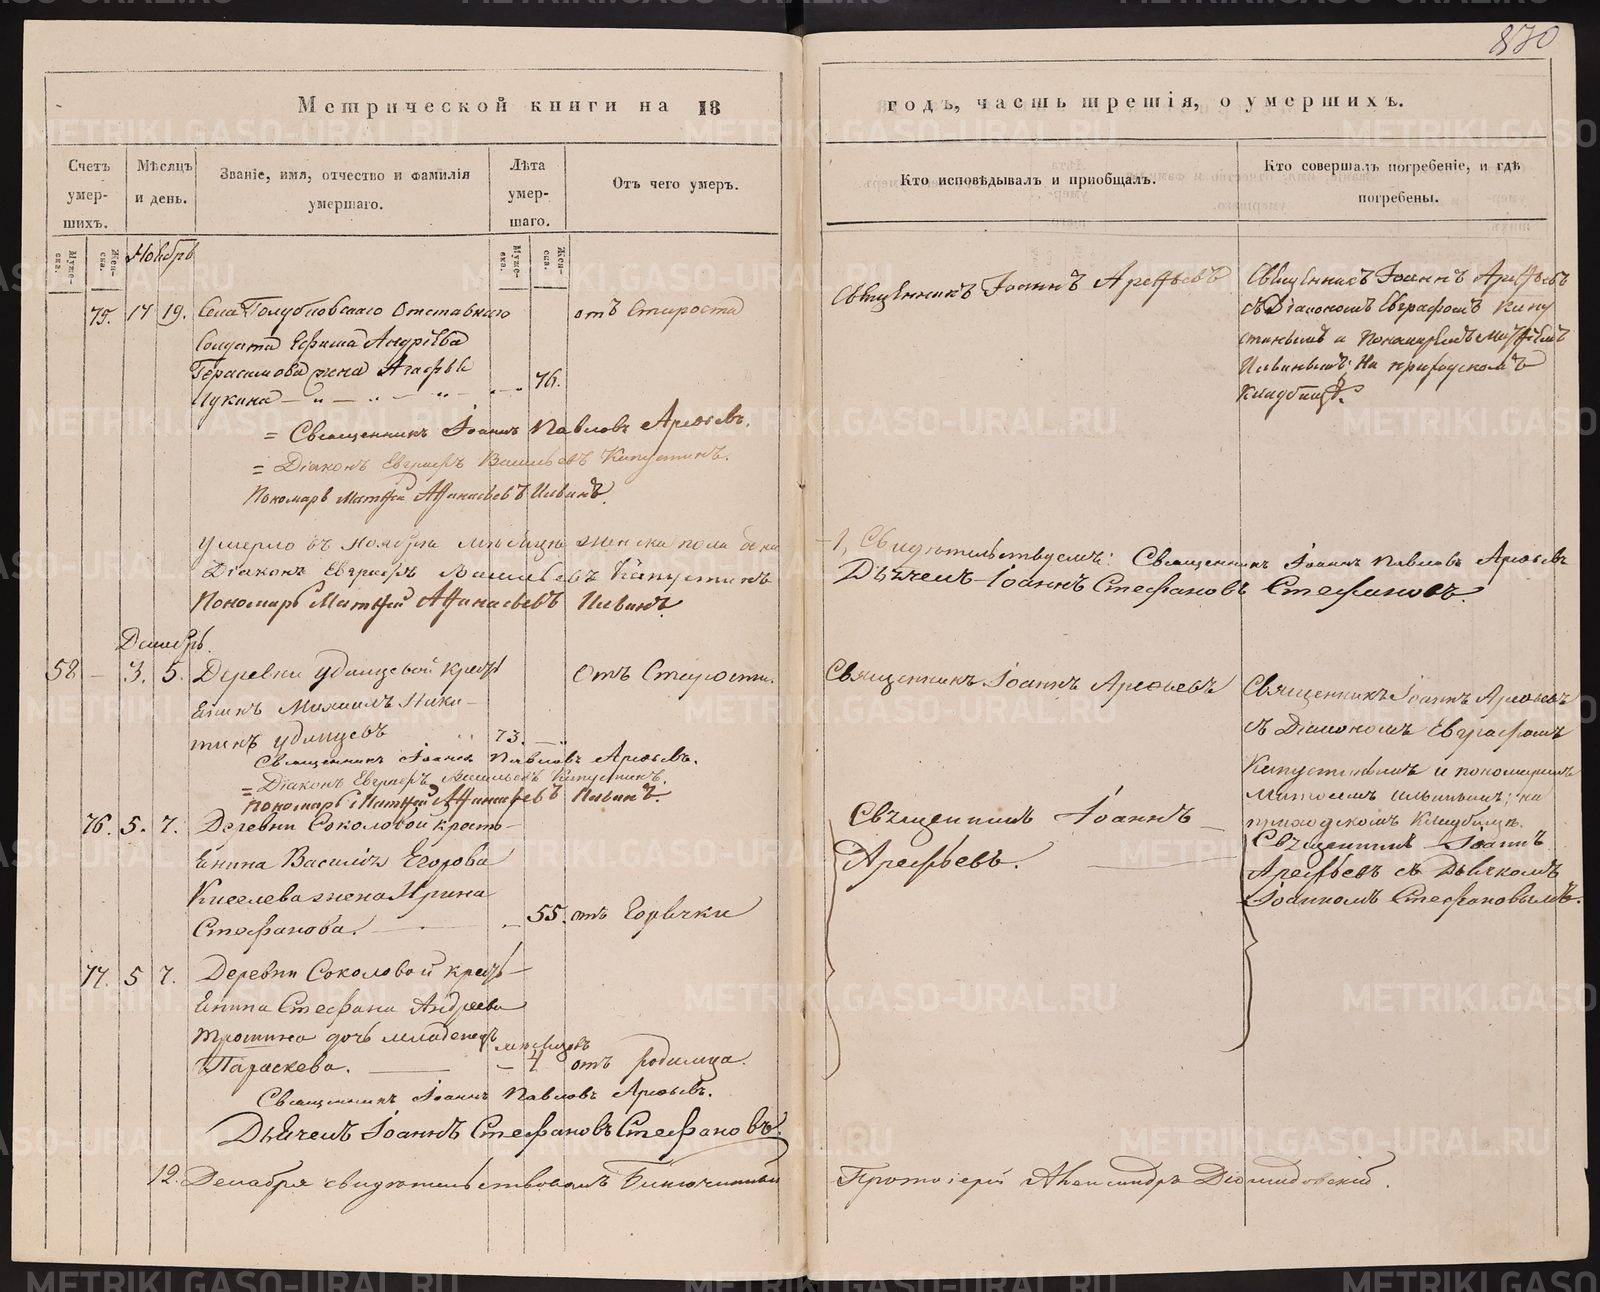 870
Метрической книги на 18
годъ, часть третія, о умершихъ.
Счетъ умер-шихъ.
Мѣсяцъ и день.
Званіе, имя, отчество и фамилія умершаго.
Лѣта умер-шаго.
Отъ чего умеръ.
Кто исповѣдывалъ и пріобщалъ.
Кто совершалъ погребеніе, и гдѣ погребены.
Муже-ска.
Жен-ска.
Муже-ска.
Жен-ска.
Ноябрь
75. 17 19. Села Отставнаго
Солдата Ефима Андрѣева
Герасимова жена Агафья
76.
отъ Старости
Священникъ Іоаннъ Арефьевъ
Священникъ Іоаннъ Арефьевъ
съ Діакономъ Евграфомъ Капу
стинымъ и Пономаремъ Матфѣемъ
Ильинымъ: На приходскомъ
Кладбищѣ.
= Священникъ Іоаннъ Павловъ Арефьевъ.
= Діаконъ Евграфъ Васильевъ Капустинъ.
Пономарь Матфей Афанасьевъ Ильинъ.
Умерло въ Ноябрѣ мѣсяцѣ женска пола
1, Свидѣтельствуемъ: Священникъ Іоаннъ Павловъ Арефьевъ
Діаконъ Евграфъ Васильевъ Капустинъ
Дьячекъ Іоаннъ Стефановъ Стефановъ.
Пономарь Матфей Афанасьевъ Ильинъ.
Декабрь.
58 — 3. 5. Деревни Удинцевой кресть
янинъ Михаилъ Ники-
тинъ Удинцевъ 73.
Отъ Старости.
Священникъ Іоаннъ Арефьевъ
Священникъ Іоаннъ Арефьевъ
съ Діакономъ Евграфомъ
Капустинымъ и пономаремъ
Матфеемъ Ильинымъ; на
приходскомъ Кладбищѣ.
Священникъ Іоаннъ Павловъ Арефьевъ.
= Діаконъ Евграфъ Васильевъ Капустинъ.
Пономарь Матфей Афанасьевъ Ильинъ.
76. 5. 7. Деревни Соколовой кресть-
янина Василія Егорова
Киселева жена Ирина
Стефанова. 55. отъ Горячки
Священникъ Іоаннъ
Арефьевъ.
Священникъ Іоаннъ
Арефьевъ съ Дьячкомъ
Іоанномъ Стефановымъ.
77. 5 7. Деревни Соколовой кресть-
янина Стефана Андреева
дочь младенецъ
Параскева. 4 мѣсяцовъ отъ родимца.
Священникъ Іоаннъ Павловъ Арефьевъ.
Дьячекъ Іоаннъ Стефановъ Стефановъ.
12. Декабря свидѣтельствовалъ Благочинный
Протоіерей Александръ Діомидовскій.
METRIKI.GASO-URAL.RU